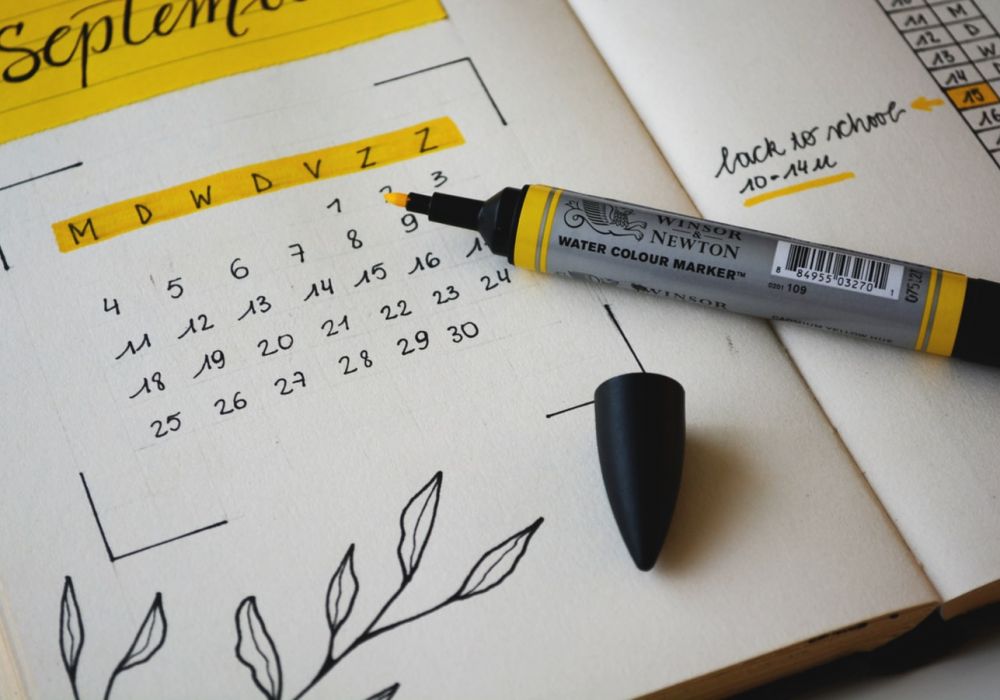 M D W D V Z Z
1 3
4 5 6 7 8 9
11 12 13 14 15 16
18 19 20 21 22 23 24
25 26 27 28 29 30
11 M
12 D
13 W
14
15
16
back to school
10-14u
WINSOR
&
NEWTON
WATER COLOUR MARKER™
0201 109
8 84955 03270 1
CADMIUM YELLOW HUE